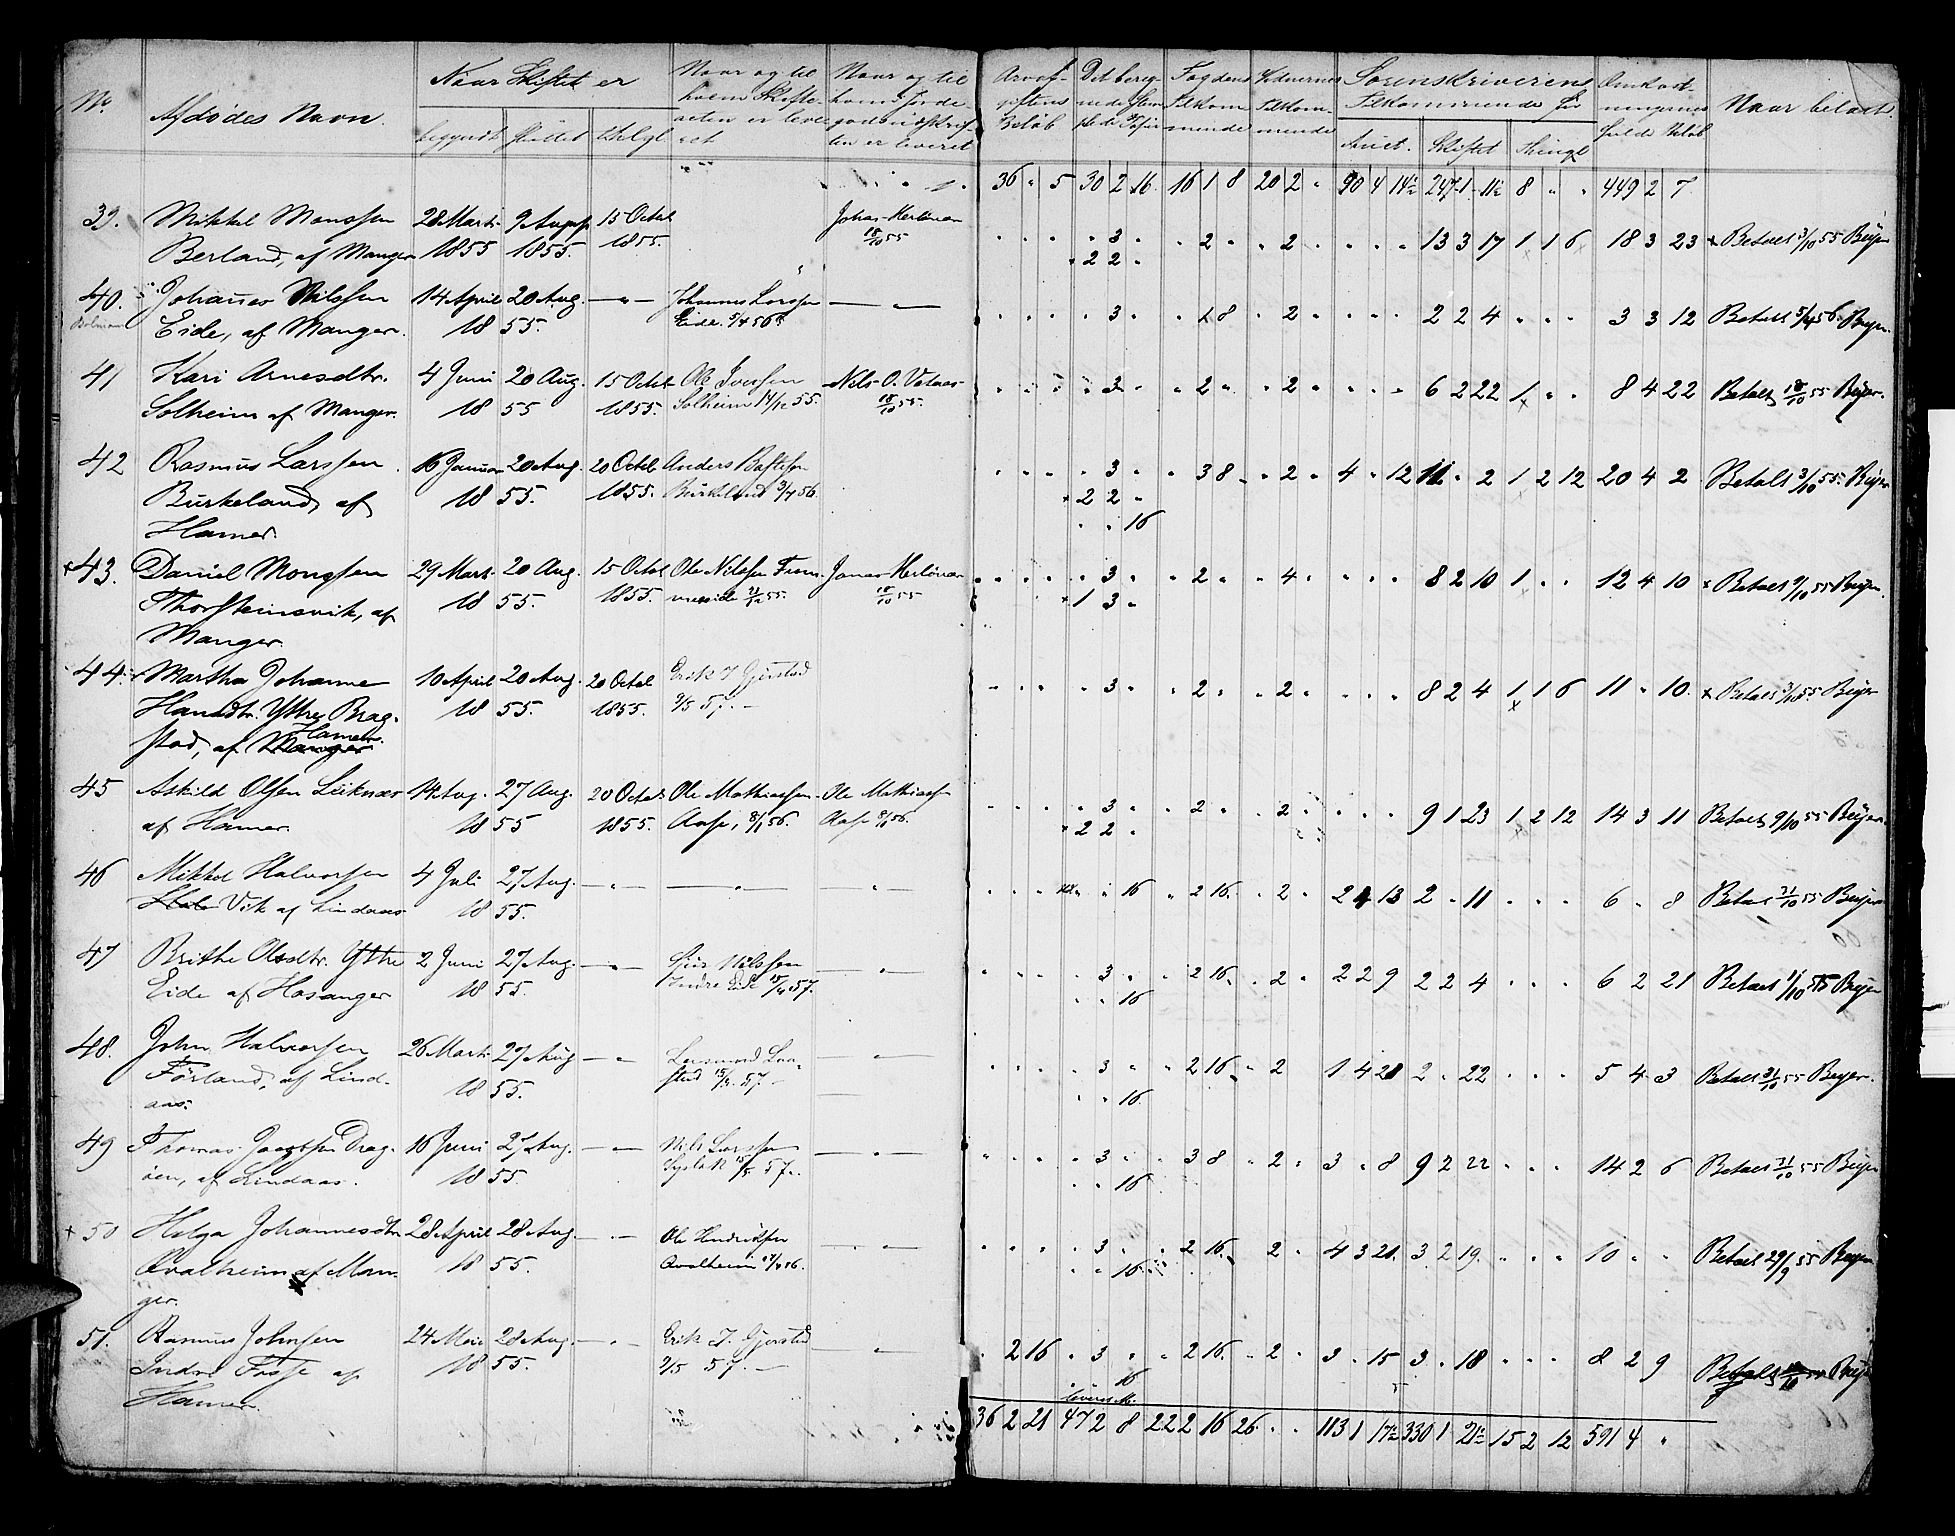 No. Afdødes Navn Naar Skiftet er
begyndt sluttet thlgl.
Naar og til
hvem Skifte-
acten er leve-
ret
Naar og til
hvem Jorde-
godsudskrif-
ten er leveret
Arveaf-
giftens
Beløb
Fogdens
Tilkom-
mende
Tilkom-
mende
Sorenskriverens
Tilkommende for
Auct. Skiftet Thingl
Omkost-
ningernes
fulde Beløb
Naar betalt.
36 " 5 30 2 16 16 1 8 20 2 " 90 4 14½ 247 1 11½ 8 " " 449 2 7
39. Mikkel Monssen 28 Marts 9 August 15 Octob
Berland, af Manger 1855 1855. 1855. 18/10 55
" 3 " " 2 " " 2 " " " " 13 3 17 1 1 6 18 3 23 Betalt 3/10 55 Beyer
2 2 "
40. Johannes Nilssen 14 April 20 Aug. — " — Johannes Larssen — " —
Eide, af Manger. 18 55. Eide. 5/4 56
" 3 " " 1 8 " 2 " " " " 2 2 4 " " " 3 3 12 Betalt 5/4 56 Beyer.
41 Kari Arnesdtr. 4 Juni 20 Aug. 15 Octob Ole Iverssen Nils O. Vatnas
Solheim af Manger. 18 55 1855. Solheim 14/12 55. 18/10 55.
" 3 " " 2 " " 2 " " " " 6 2 22 1 " " 8 4 22 Betalt 18/10 55 Beyer.
42 Rasmus Larssen 16 Januar 20 Aug. 20 Octob Anders
Birkeland, af 18 55. 1855. Birkeland 3/4 56.
Hamer
" 3 " " 3 8 " 2 " 4 " 12 11 " 2 1 2 12 20 4 2 Betalt 3/10 55. Beyer
2 2 "
" " 16
43. Daniel Monssen 29 Mart. 20 Aug. 15 Octob Ole Nilssen
Thorsteinsvik, af 18 55. 1855. 18/10 55
Manger.
" 3 " " 2 " " 4 " " " " 8 2 10 1 " " 12 4 10 Betalt 9/10 55 Beyer.
1 3 "
44. Martha Johanne 10 April 20 Aug. 20 Octob Erik J Gjerstad
Hansdtr. Yttre Brag- 18 55. 1855. 9/5 57. —
Hamer.
stad, af Manger
" 3 " " 2 " " 2 " " " " 8 2 4 1 1 6 11 " 10. Betalt 3/10 55 Beyer
45 Askild Olsen Leiknæs 14 Aug. 27 Aug. 20 Octob Ole Mathiassen Ole Mathiassen
af Hamer. 18 55 1855. Aase, 8/1 56. Aase 8/1 56.
" 3 " " 2 " " 2 " " " " 9 1 23 1 2 12 14 3 11 Betalt 9/10 55 Beyer.
2 2 "
46 Mikkel Halvorssen 4 Juli 27 Aug. — " — — " — — " —
Vik af Lindaas 18 55.
" " 16 " 2 16. " 2 " 2 4 13 2 " 11 " " " 6 " 8 Betalt 31/10 55 Beyer
47 Brithe Olsdtr. Yttre 2 Juni 27 Aug. — " — Nilssen — " —
Eide af Hosanger 18 55. Indre Eide 15/4 57.
" 3 " " 2 16. " 2 " 2 2 9 2 2 4 " " " 6 2 21 Betalt 11/10 55 Beyer
" " 16
48. John Halvorsen 26 Marts 27 Aug — " — — " —
Førland, af Lind- 18 55. 57. —
aas.
" 3 " " 2 16 " 2 1 4 21 2 " 22 " " " 5 4 3 Betalt 31/10 55 Beyer.
" " 16.
49 Thomas Jacobsen Drag- 16 Juni 27 Aug. — " — Nils Larssen — " —
øen, af Lindaas. 18 55. 57.
" 3 " " 3 8 " 2 " 3 " 8 9 2 22 " " " 14 2 6 Betalt 31/10 55 Beyer
" " 16
50 Helga Johannesdtr 28 April 28 Aug. — " — Ole Hendrikssen — " —
Qvalheim af Man- 18 55. Qvalheim
ger.
" 3 " " 2 16. " 2 " 4 3 21. 3 2 19. " " " 10 " " Betalt 29/9 55 Beyer
" " 16.
51. Rasmus Johnsen 24 Mai 28 Aug. — " — Erik J. Gjerstad — " —
Indre Fosse af 18 55. 9/5 57. —
Hamer.
" 2 16 " 3 " " 2 16. " 2 " 3 " 15 3 " 18 " " " 8 2 9 Betalt Beyer
16
36 2 21 47 2 8 22 2 16 26 " " 113 1 17½ 330 1 21½ 15 2 12 591 4 "